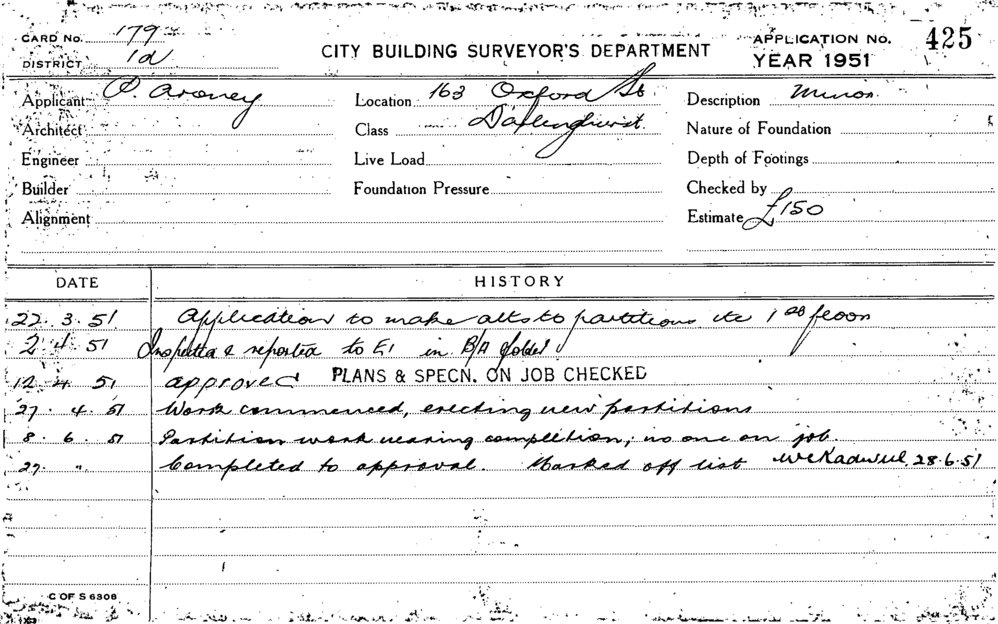 CARD No. 179
DISTRICT 1d
CITY BUILDING SURVEYOR'S DEPARTMENT
APPLICATION No. 425
YEAR 1951
Applicant P. Aroney
Location 163 Oxford St
Description Minor
Architect
Class Darlinghurst
Nature of Foundation
Engineer
Live Load
Depth of Footings
Builder
Foundation Pressure
Checked by
Alignment
Estimate £150
DATE HISTORY
22. 3. 51 Application to make alts to partitions etc 1st floor
2 4 51 Inspected & reported to E1 in B/A folder
12 4 51 approved PLANS & SPECN. ON JOB CHECKED
27. 4. 51 Work commenced, erecting new partitions
8. 6. 51 Partition work nearing completion; no one on job.
27. " Completed to approval. Marked off list 28.6.51
C OF S 6306